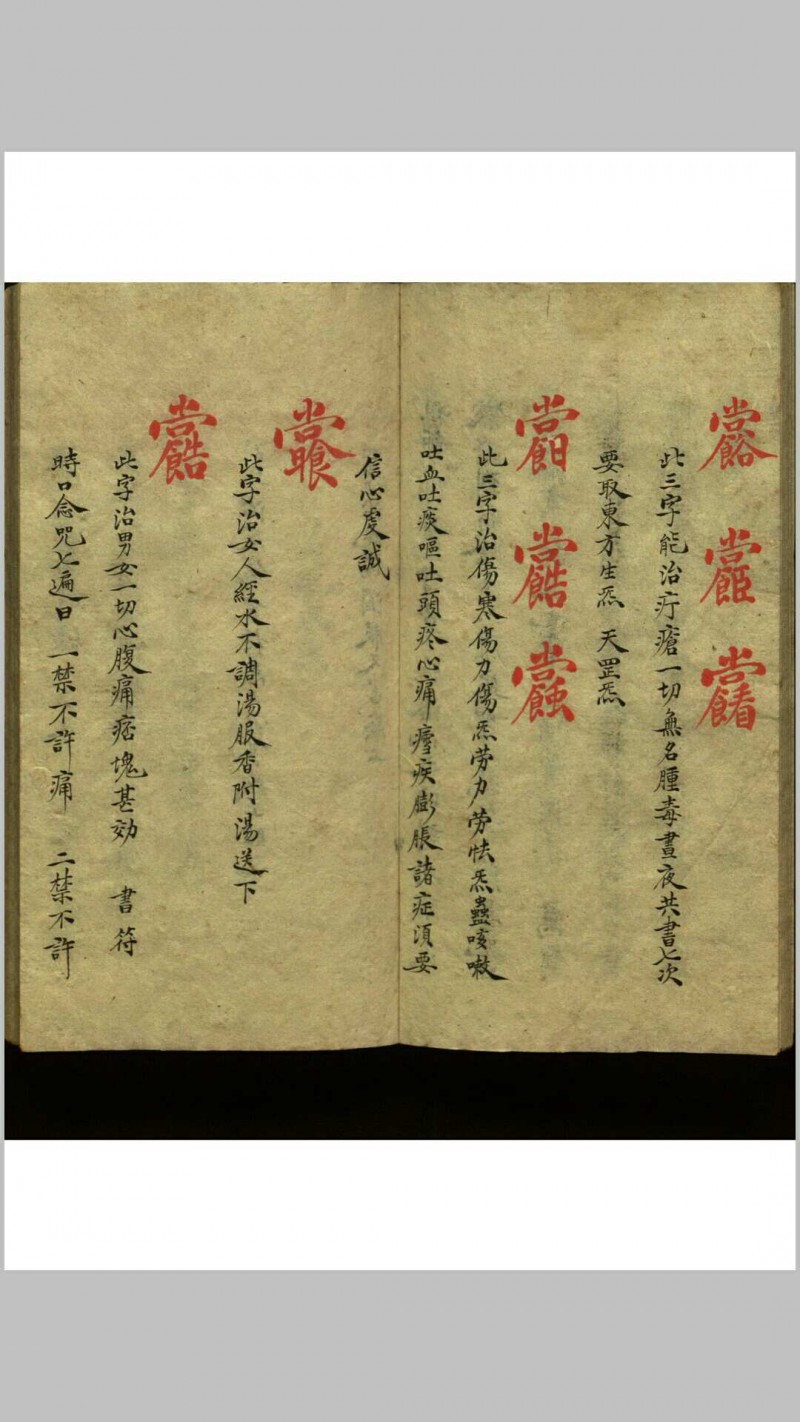 此三字能治疔瘡一切無名腫毒晝夜共書七次
要取東方生炁 天罡炁
此三字治傷寒傷力傷炁勞力勞怯炁蠱咳嗽
吐血吐痰嘔吐頭疼心痛 疾膨脹諸症須要
信心虔誠
此字治女人經水不調湯服香附湯送下
此字治男女一切心腹痛痞塊甚効 書符
時口念咒七遍曰 一禁不許痛 二禁不許